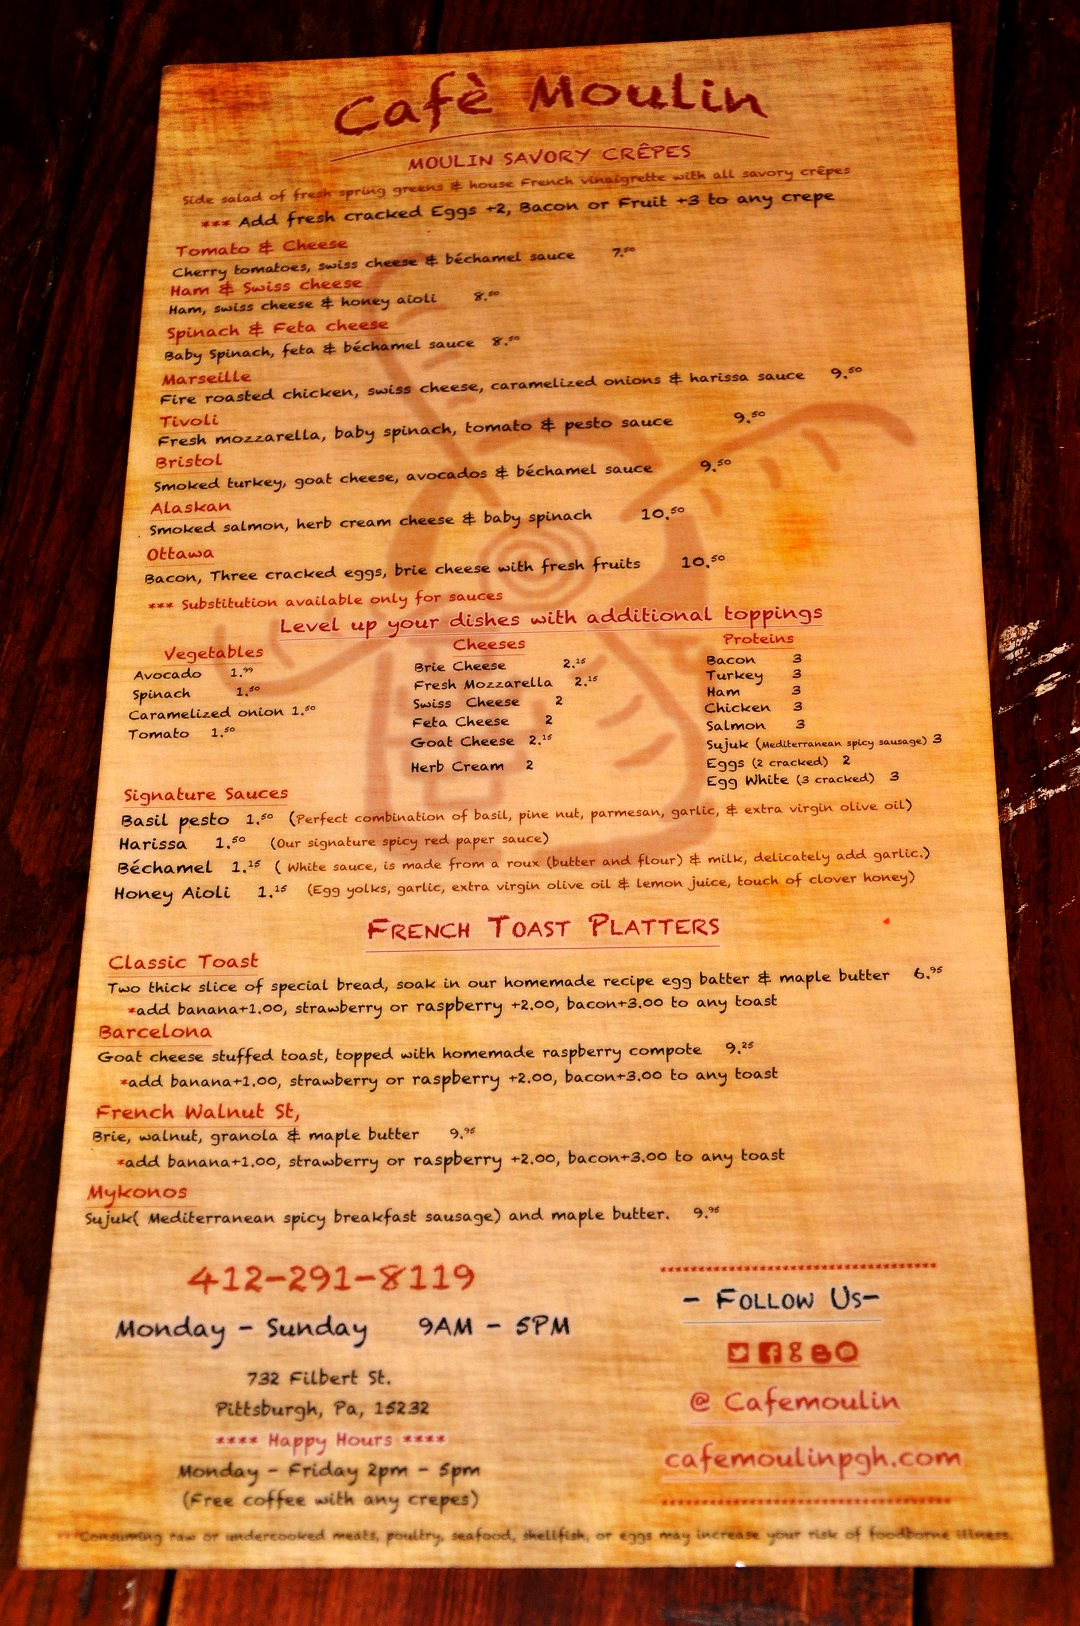 Cafè Moulin
MOULIN SAVORY CRÊPES
Side salad of fresh spring greens & house French vinaigrette with all savory crêpes
*** Add fresh cracked Eggs +2, Bacon or Fruit +3 to any crepe
Tomato & Cheese
Cherry tomatoes, swiss cheese & béchamel sauce 7.50
Ham & Swiss cheese
Ham, swiss cheese & honey aioli 8.50
Spinach & Feta cheese
Baby Spinach, feta & béchamel sauce 8.50
Marseille
Fire roasted chicken, swiss cheese, caramelized onions & harissa sauce 9.50
Tivoli
Fresh mozzarella, baby spinach, tomato & pesto sauce 9.50
Bristol
Smoked turkey, goat cheese, avocados & béchamel sauce 9.50
Alaskan
Smoked salmon, herb cream cheese & baby spinach 10.50
Ottawa
Bacon, Three cracked eggs, brie cheese with fresh fruits 10.50
*** Substitution available only for sauces
Level up your dishes with additional toppings
Vegetables
Avocado 1.99
Spinach 1.50
Caramelized onion 1.50
Tomato 1.50
Cheeses
Brie Cheese 2.15
Fresh Mozzarella 2.15
Swiss Cheese 2
Feta Cheese 2
Goat Cheese 2.15
Herb Cream 2
Proteins
Bacon 3
Turkey 3
Ham 3
Chicken 3
Salmon 3
Sujuk (Mediterranean spicy sausage) 3
Eggs (2 cracked) 2
Egg White (3 cracked) 3
Signature Sauces
Basil pesto 1.50 (Perfect combination of basil, pine nut, parmesan, garlic, & extra virgin olive oil)
Harissa 1.50 (Our signature spicy red paper sauce)
Béchamel 1.15 ( White sauce, is made from a roux (butter and flour) & milk, delicately add garlic.)
Honey Aioli 1.15 (Egg yolks, garlic, extra virgin olive oil & lemon juice, touch of clover honey)
FRENCH TOAST PLATTERS
Classic Toast
Two thick slice of special bread, soak in our homemade recipe egg batter & maple butter 6.95
*add banana+1.00, strawberry or raspberry +2.00, bacon+3.00 to any toast
Barcelona
Goat cheese stuffed toast, topped with homemade raspberry compote 9.25
*add banana+1.00, strawberry or raspberry +2.00, bacon+3.00 to any toast
French Walnut St,
Brie, walnut, granola & maple butter 9.95
*add banana+1.00, strawberry or raspberry +2.00, bacon+3.00 to any toast
Mykonos
Sujuk( Mediterranean spicy breakfast sausage) and maple butter. 9.95
412-291-8119
Monday - Sunday 9AM - 5PM
732 Filbert St.
Pittsburgh, Pa, 15232
**** Happy Hours ****
Monday - Friday 2pm - 5pm
(Free coffee with any crepes)
- FOLLOW US-
@ Cafemoulin
cafemoulinpgh.com
***Consuming raw or undercooked meats, poultry, seafood, shellfish, or eggs may increase your risk of foodborne illness.